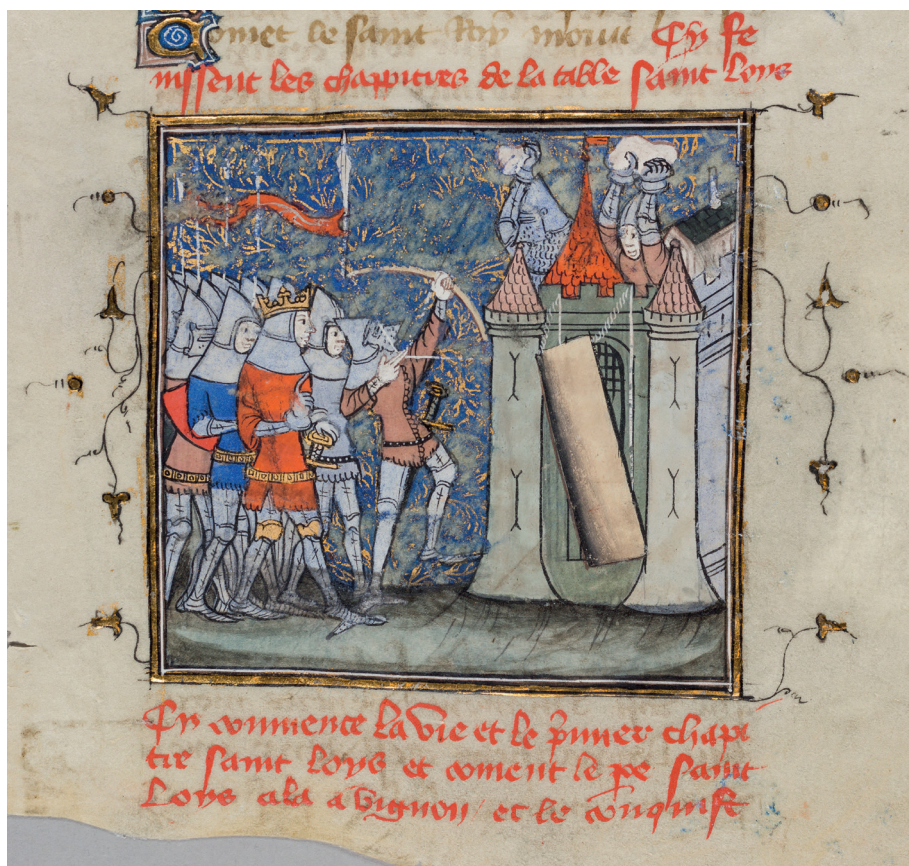 Comet le saint Roy morut Cy fe
nissent les chappitres de la table saint Loys
Cy commence la vie et le p̄mier chapi
tre saint Loys et coment le pe saint
Loys ala a vignon / et le conquist